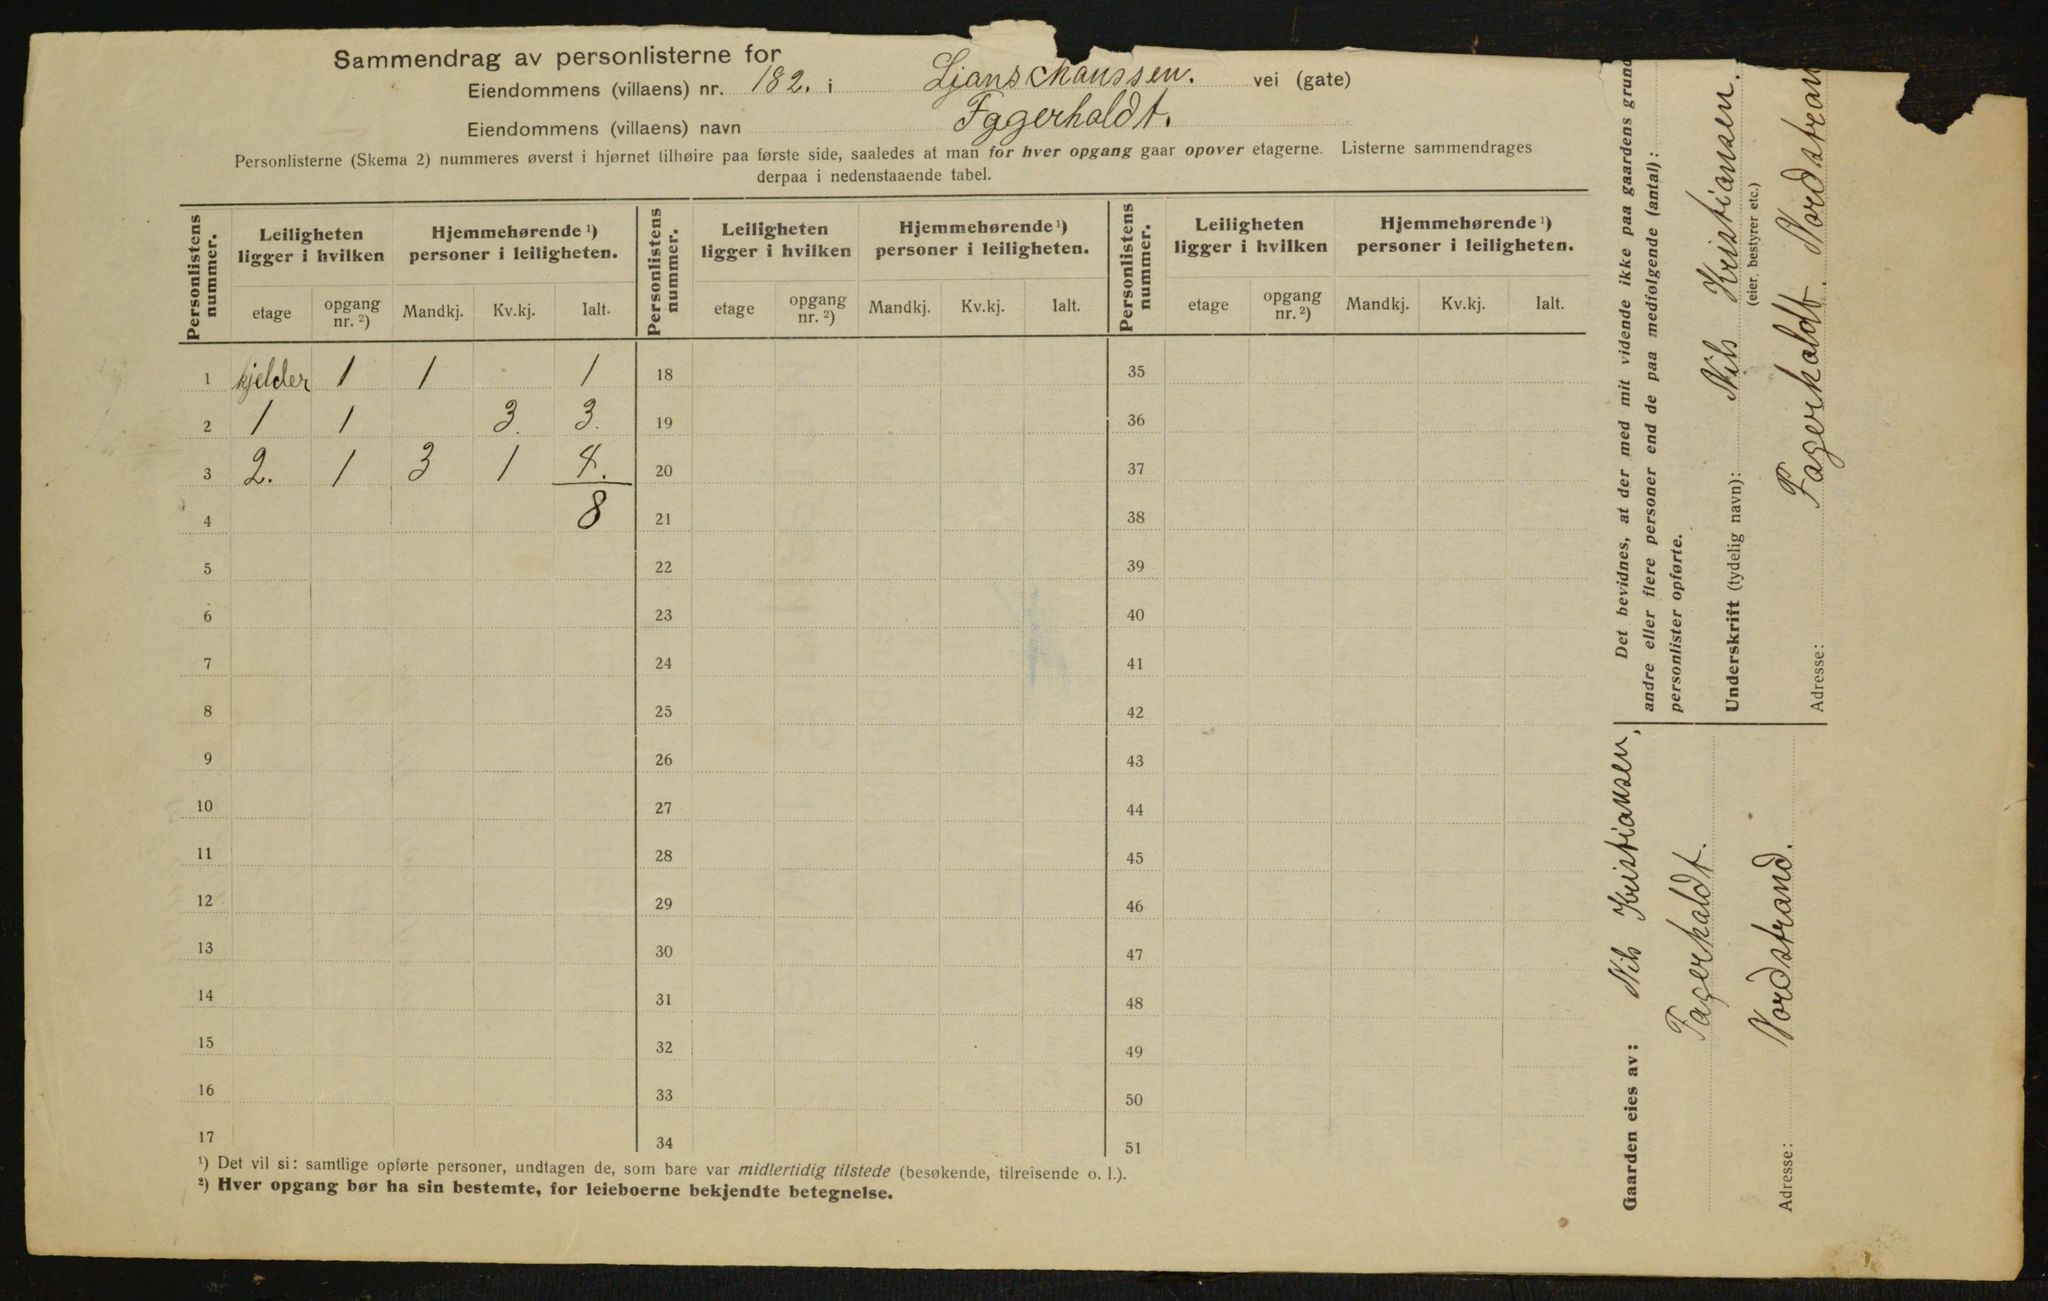 Sammendrag av personlisterne for
Eiendommens (villaens) nr. 182. i Ljanschaussen. vei (gate)
Eiendommens (villaens) navn Fagerholdt.
Personlisterne (Skema 2) nummeres øverst i hjørnet tilhøire paa første side, saaledes at man for hver opgang gaar opover etagerne. Listerne sammendrages
derpaa i nedenstaaende tabel.
Personlistens nummer. Leiligheten ligger i hvilken Hjemmehørende ¹) personer i leiligheten. Personlistens nummer. Leiligheten ligger i hvilken Hjemmehørende ¹) personer i leiligheten. Personlistens nummer. Leiligheten ligger i hvilken Hjemmehørende ¹) personer i leiligheten.
etage opgang nr. ²) Mandkj. Kv.kj. Ialt. etage opgang nr. ²) Mandkj. Kv.kj. Ialt. etage opgang nr. ²) Mandkj. Kv.kj. Ialt.
1 kjelder 1 1 1 18 35
2 1 1 3. 3. 19 36
3 2. 1 3 1 4. 20 37
4 8 21 38
5 22 39
6 23 40
7 24 41
8 25 42
9 26 43
10 27 44
11 28 45
12 29 46
13 30 47
14 31 48
15 32 49
16 33 50
17 34 51
¹) Det vil si: samtlige opførte personer, undtagen de, som bare var midlertidig tilstede (besøkende, tilreisende o. l.).
²) Hver opgang bør ha sin bestemte, for leieboerne bekjendte betegnelse.
Gaarden eies av: Nils Kristiansen,
Fagerholdt.
Adresse: Nordstrand.
Det bevidnes, at der med mit vidende ikke paa gaardens grund
andre eller flere personer end de paa medfølgende (antal):
personlister opførte.
Underskrift (tydelig navn): Nils Kristiansen.
(eier, bestyrer etc.)
Adresse: Fagerholdt. Nordstran